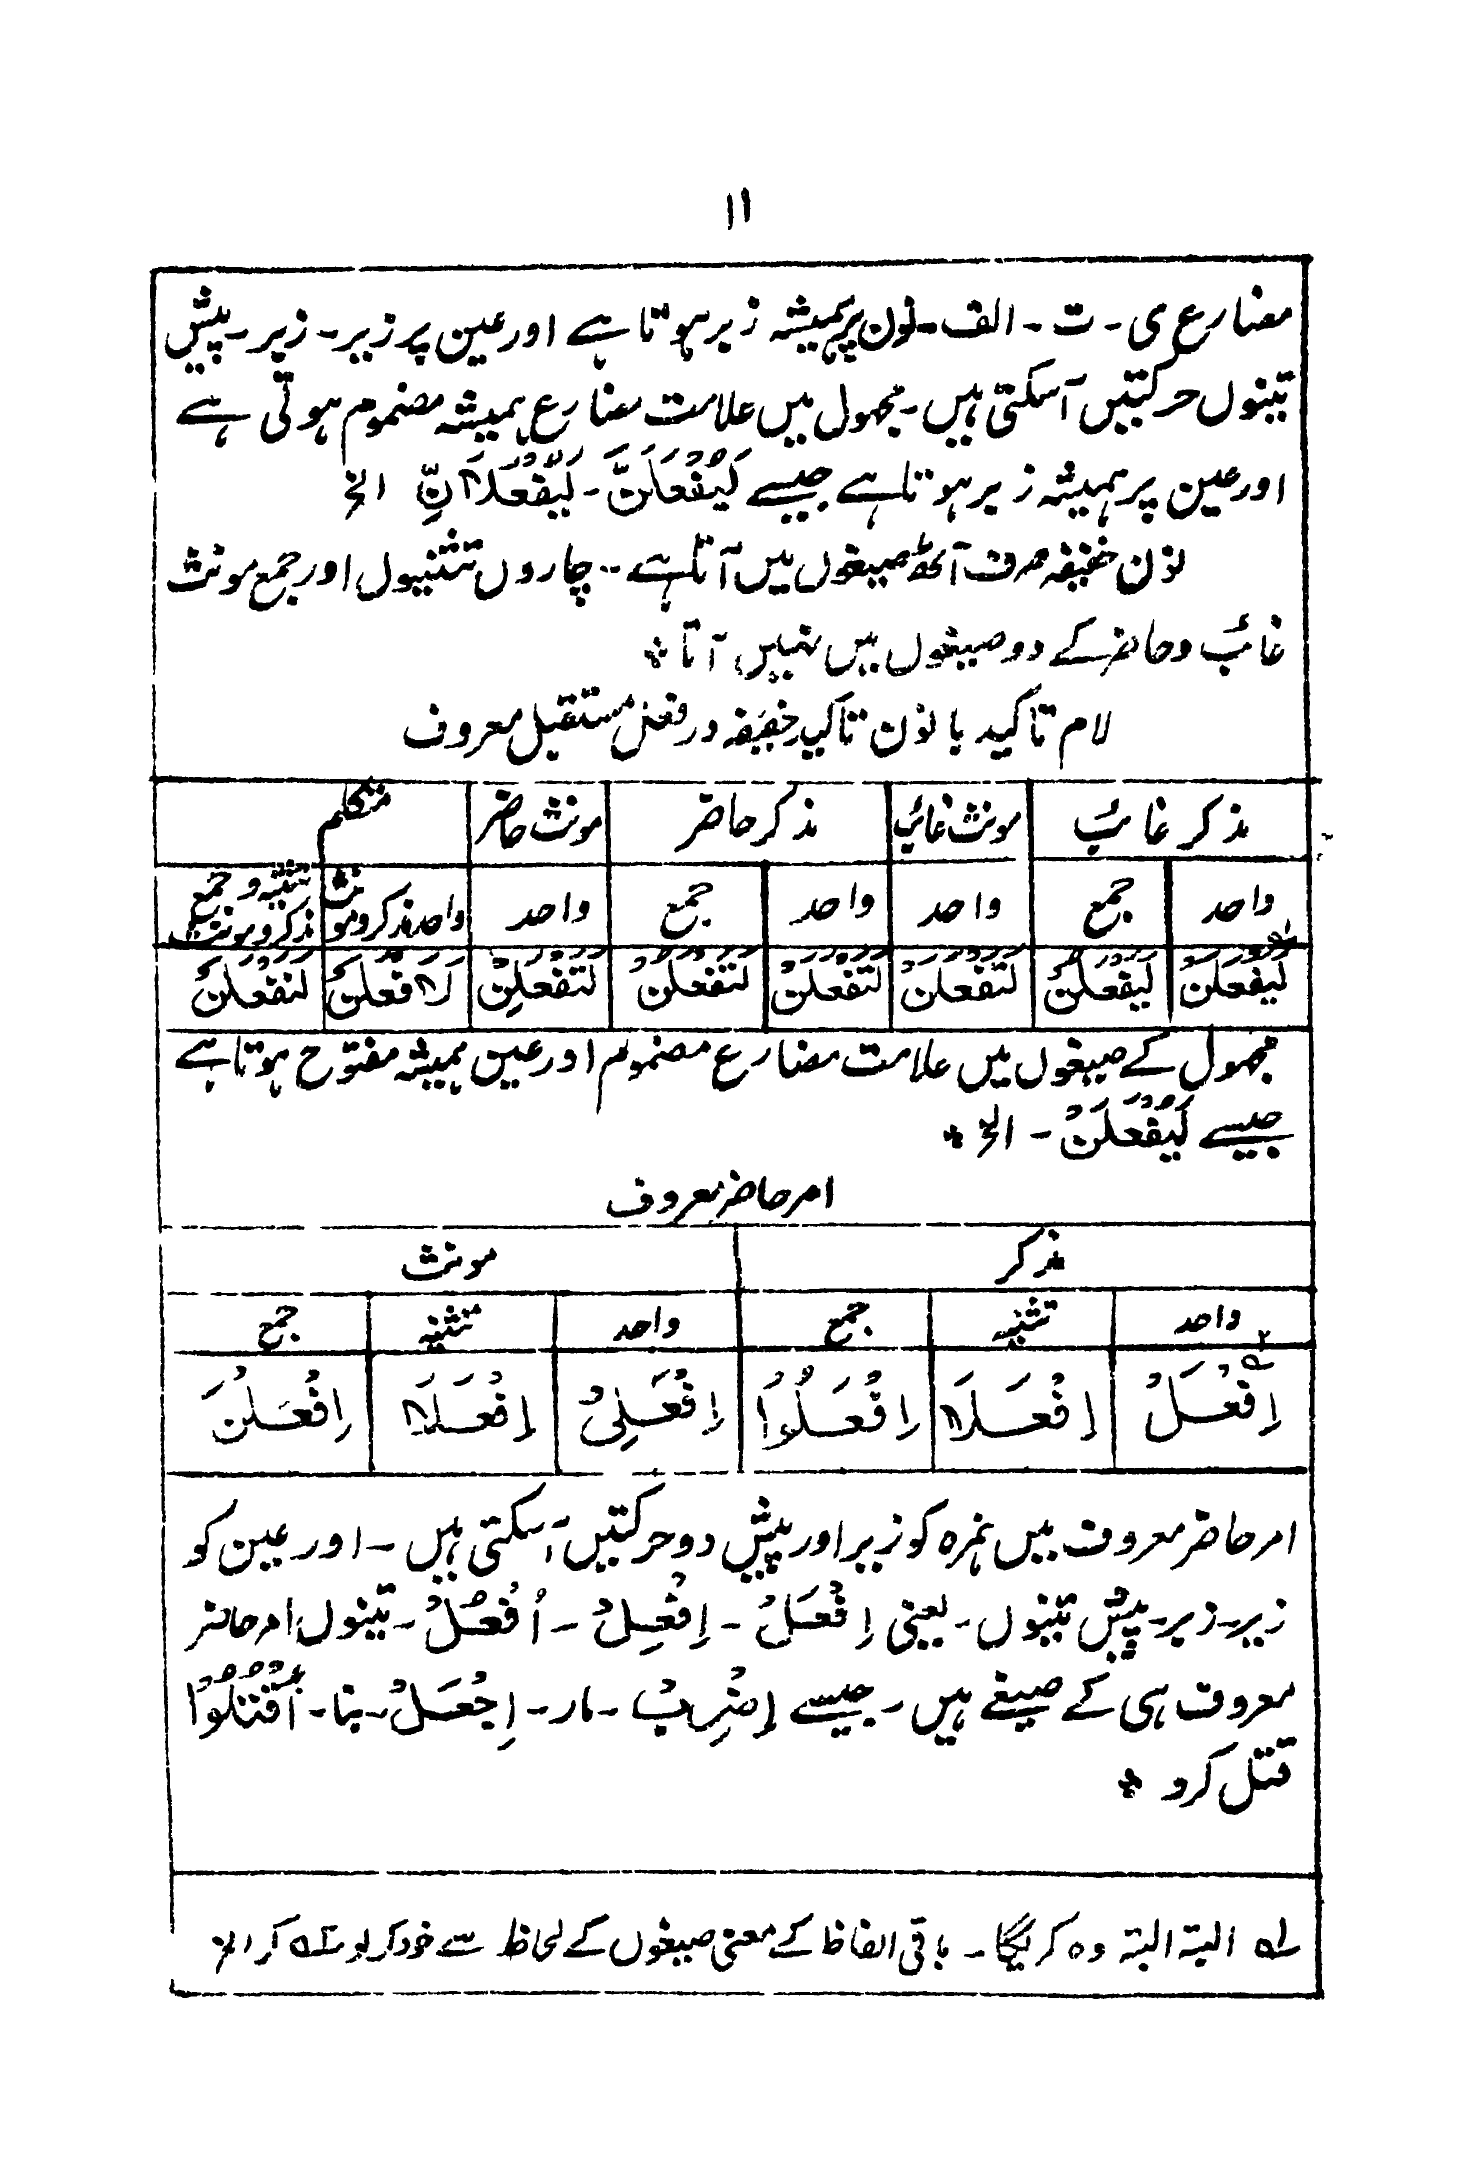 ۱۱
مضارع ی ۔ ت ۔ الف ۔ نون پر ہمیشہ زبر ہوتا ہے اور عین پر زبر ۔ زیر ۔ پیش
تینوں حرکتیں آسکتی ہیں ۔ مجہول میں علامت مضارع ہمیشہ مضموم ہوتی ہے
اور عین پر ہمیشہ زبر ہوتا ہے جیسے لَيُفْعَلَنَّ ۔ لَيُفْعَلَانِّ الخ
نون خفیفہ صرف آٹھ صیغوں میں آتا ہے ۔ چاروں تثنیوں اور جمع مونث
غائب و حاضر کے دو صیغوں میں نہیں آتا *
لام تاکید با نون تاکید خفیفہ در فعل مستقبل معروف
مذکر غائب مونث غائب مذکر حاضر مونث حاضر متکلم
واحد جمع واحد واحد جمع واحد واحد مذکر و مونث تثنیہ و جمع مذکر و مونث
لَيَفْعَلَنْ لَيَفْعَلُنْ لَتَفْعَلَنْ لَتَفْعَلَنْ لَتَفْعَلُنْ لَتَفْعَلِنْ لَاَفْعَلَنْ لَنَفْعَلَنْ
مجہول کے صیغوں میں علامت مضارع مضموم اور عین ہمیشہ مفتوح ہوتا ہے
جیسے لَيُفْعَلَنْ ۔ الخ *
امر حاضر معروف
مذکر مونث
واحد تثنیہ جمع واحد تثنیہ جمع
اِفْعَلْ ۲ اِفْعَلَا اِفْعَلُوْا اِفْعَلِیْ اِفْعَلَا اِفْعَلْنَ
امر حاضر معروف میں ہمزہ کو زیر اور پیش دو حرکتیں آسکتی ہیں ۔ اور عین کو
زبر ۔ زیر ۔ پیش تینوں ۔ یعنی اِفْعَلْ ۔ اِفْعِلْ ۔ اُفْعُلْ ۔ تینوں امر حاضر
معروف ہی کے صیغے ہیں ۔ جیسے اِضْرِبْ ۔ مار ۔ اِجْعَلْ ۔ بنا ۔ اُقْتُلُوْا
قتل کرو *
۱ البتہ البتہ وہ کریگا ۔ باقی الفاظ کے معنی صیغوں کے لحاظ سے خود کر لو ۲ کر الخ